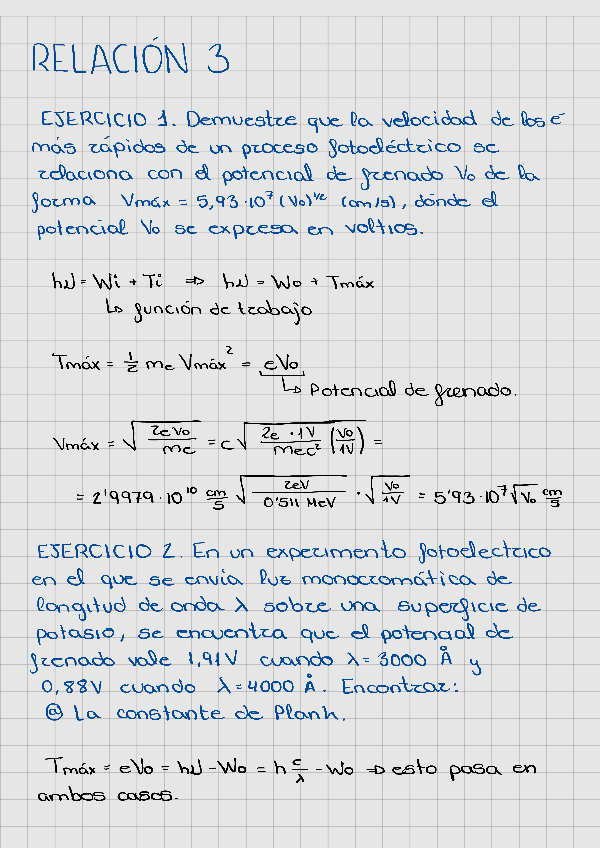 RELACIÓN 3
EJERCICIO 1. Demuestre que la velocidad de los e⁻
más rápidos de un proceso fotoeléctrico se
relaciona con el potencial de frenado V₀ de la
forma Vmáx = 5,93·10⁷ (V₀)^1/2 (cm/s), dónde el
potencial V₀ se expresa en voltios.
hν = Wi + Ti ⇒ hν = W₀ + Tmáx
↳ función de trabajo
Tmáx = 1/2 me Vmáx² = eV₀
↳ Potencial de frenado.
Vmáx = √(2eV₀/me) = c√(2e·1V/mec² (V₀/1V)) =
= 2'9979·10¹⁰ cm/s √(2eV/0'511 MeV) · √(V₀/1V) = 5'93·10⁷√V₀ cm/s
EJERCICIO 2. En un experimento fotoelectrico
en el que se envía luz monocromática de
longitud de onda λ sobre una superficie de
potasio, se encuentra que el potencial de
frenado vale 1,91V cuando λ = 3000 Å y
0,88V cuando λ = 4000 Å. Encontrar:
ⓐ La constante de Planh.
Tmáx = eV₀ = hν - W₀ = h c/λ - W₀ ⇒ esto pasa en
ambos casos.